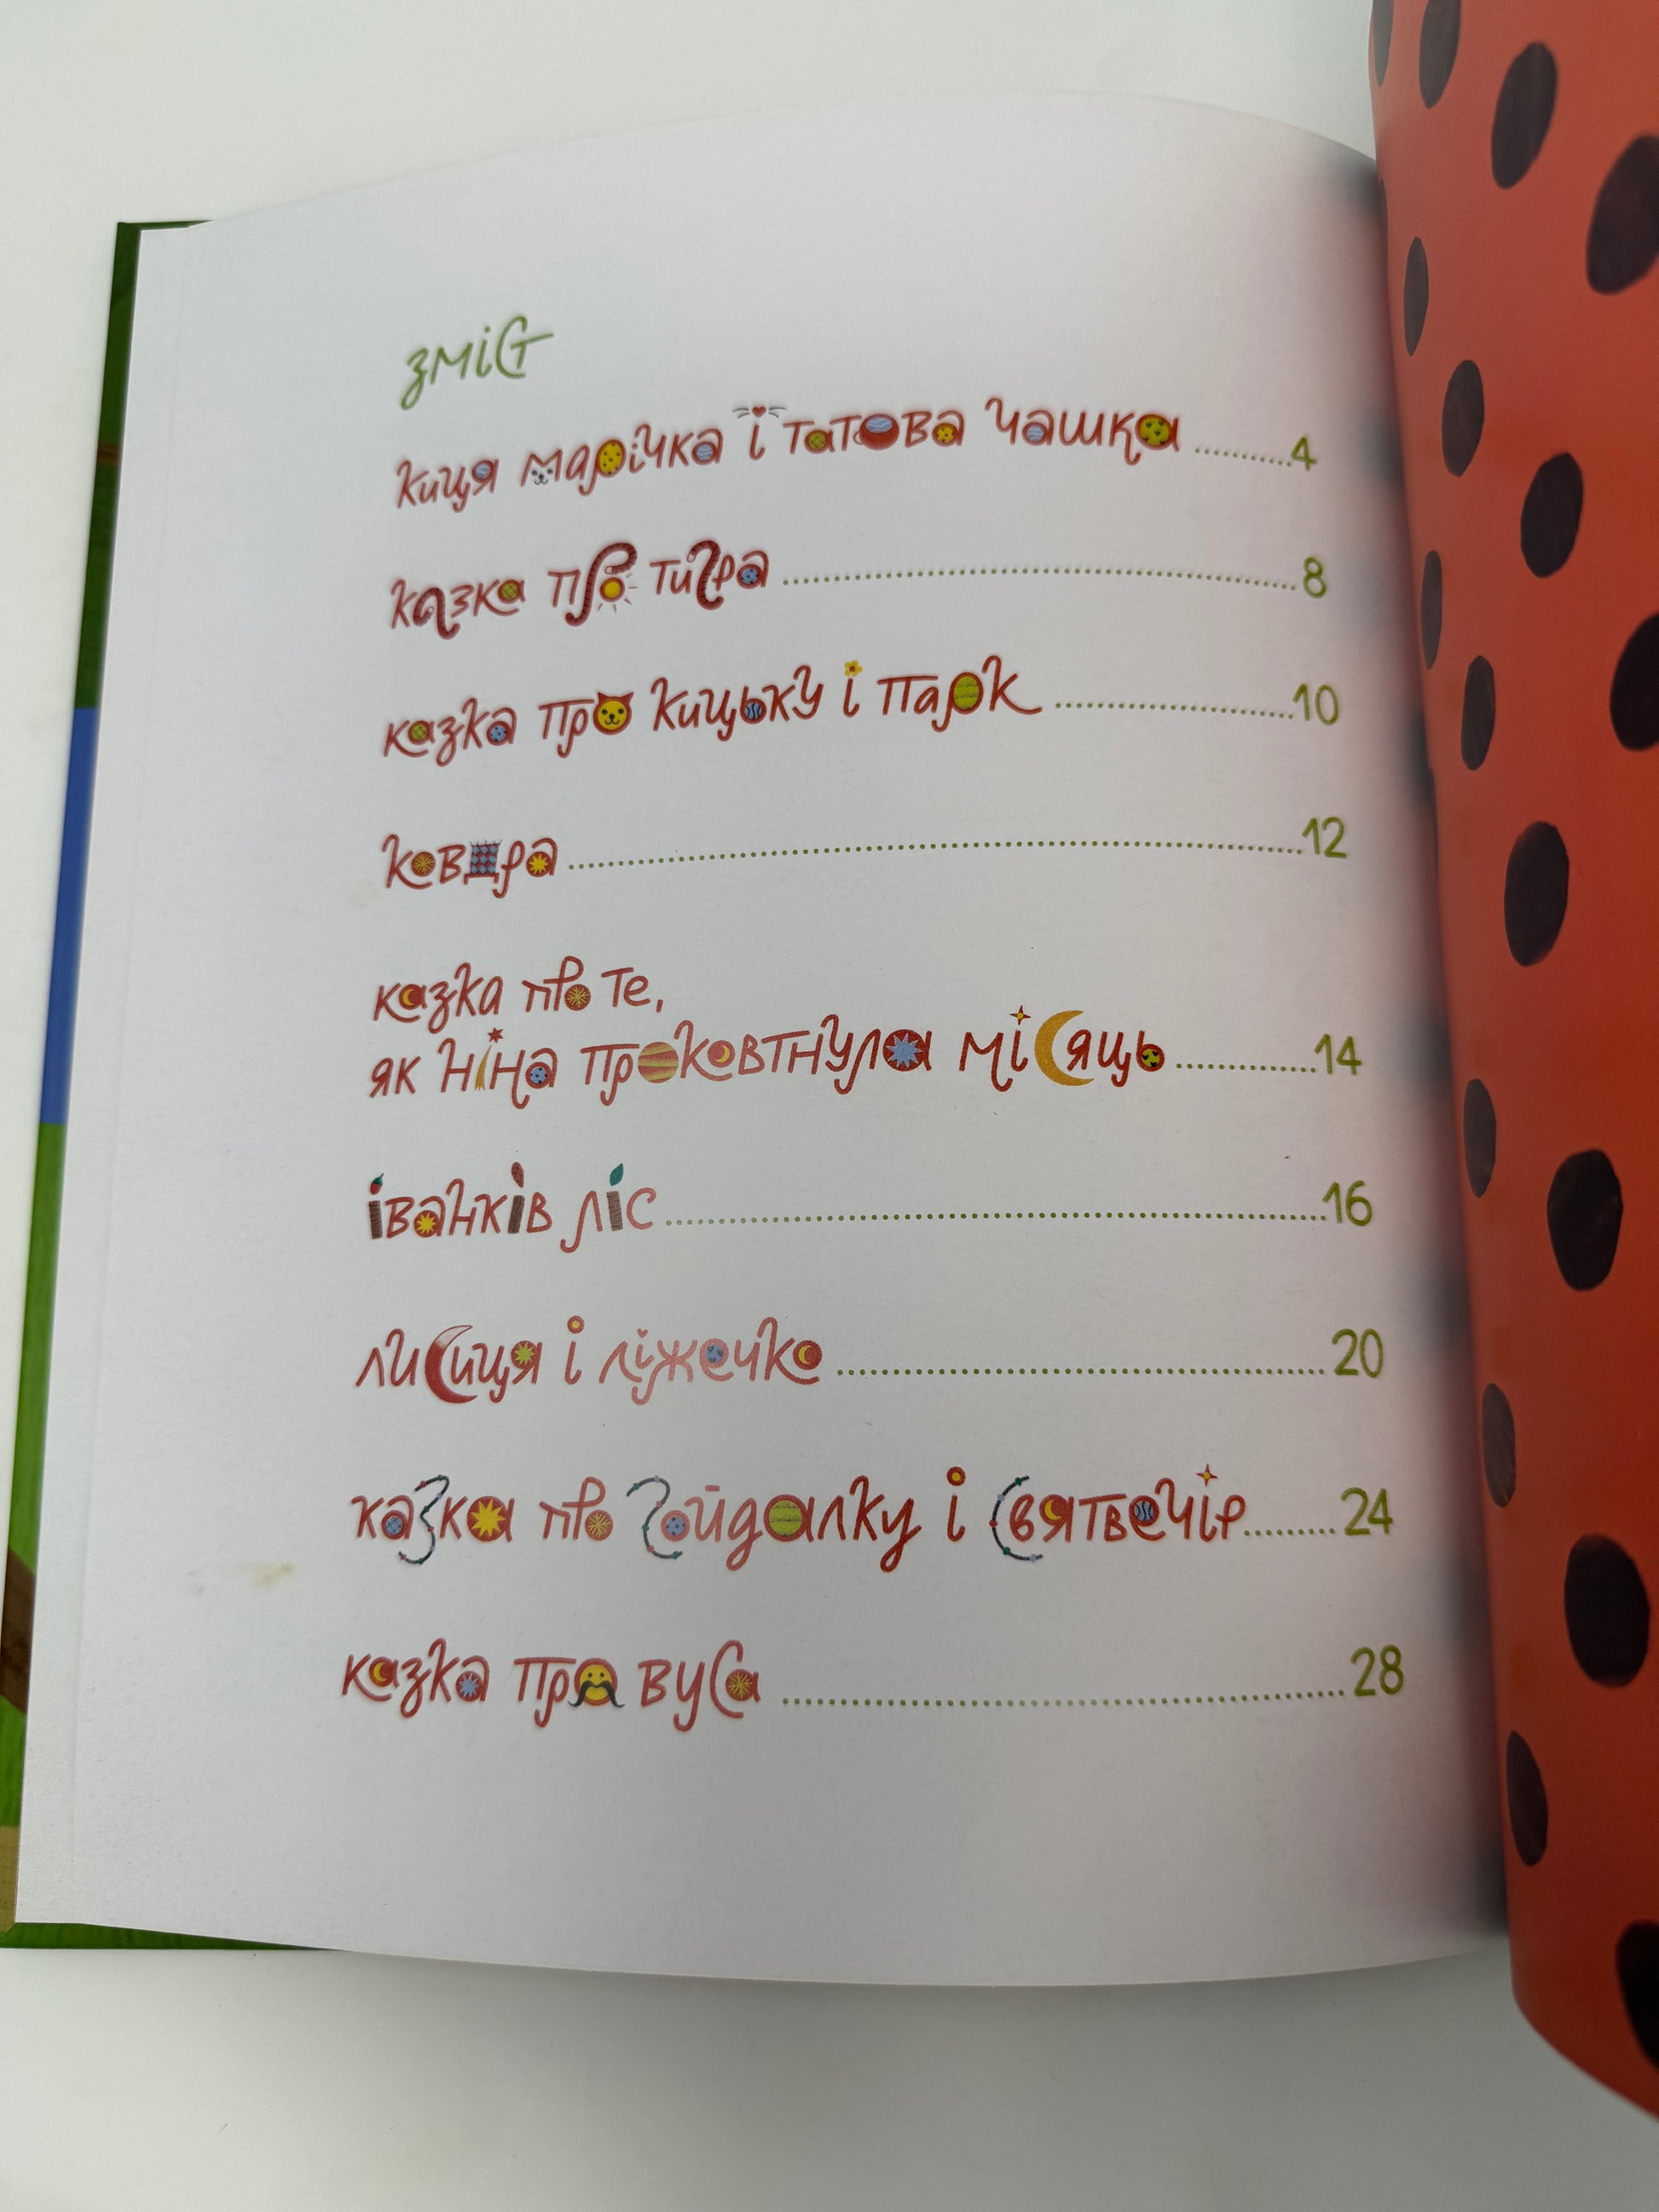 зміст
киця марічка і татова чашка ..........4
казка про тигра ..........8
казка про кицьку і парк ..........10
ковдра ..........12
казка про те,
як ніна проковтнула місяць ..........14
іванків ліс ..........16
лисиця і ліжечко ..........20
казка про гойдалку і святвечір ..........24
казка про вуса ..........28